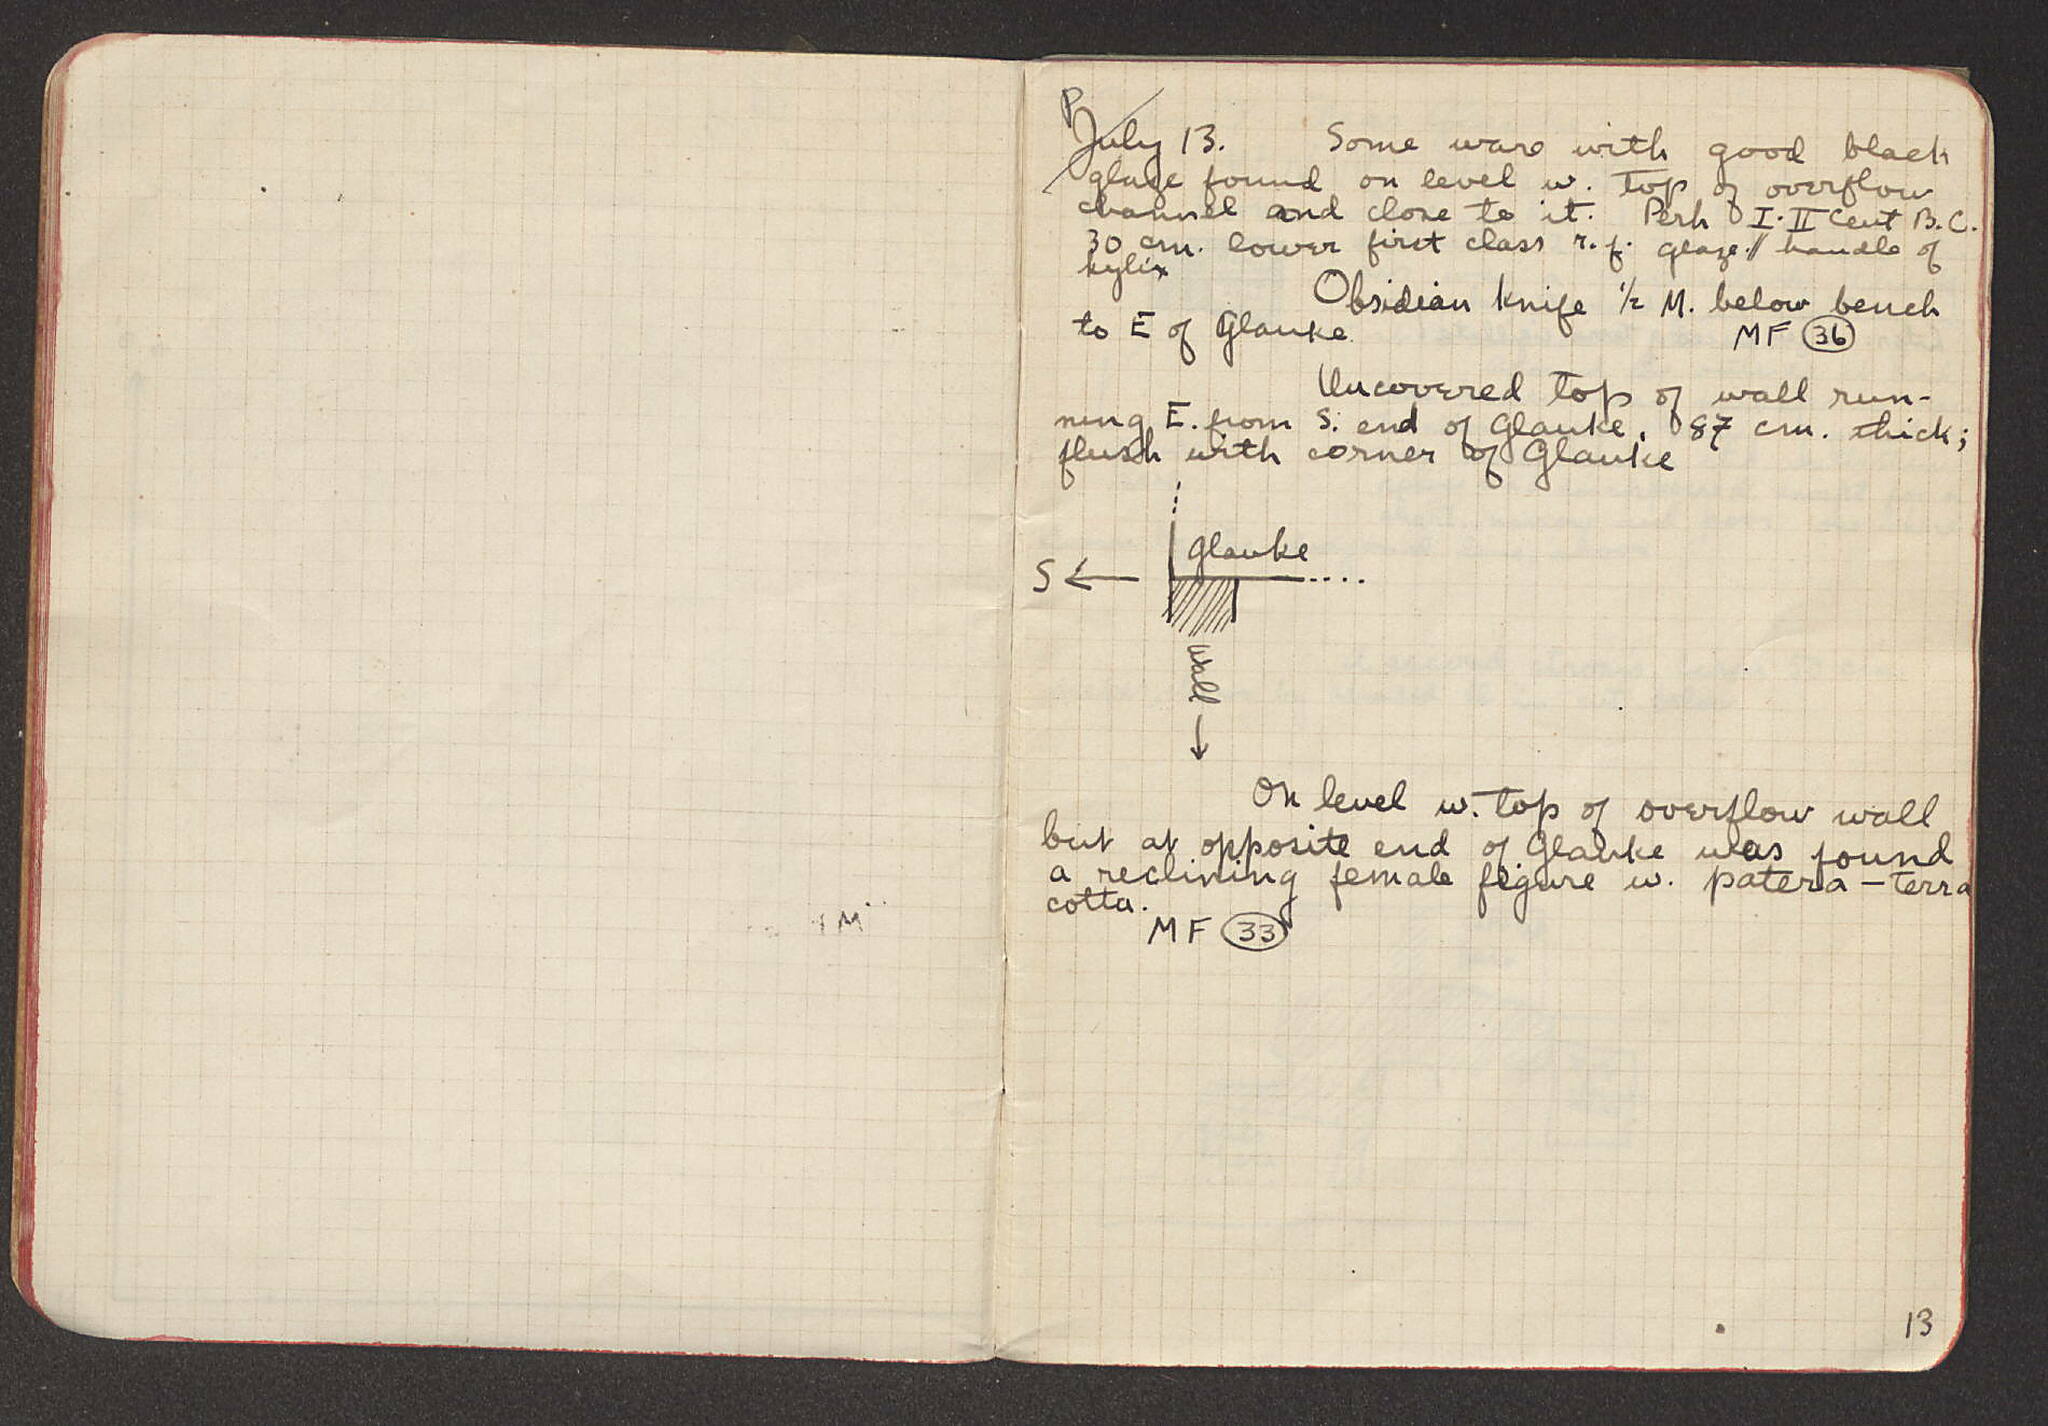 P
July 13. Some ware with good black
glaze found on level w. top of overflow
channel and close to it. Perh I-II Cent B.C.
30 cm. lower first class r.f. glaze // handle of
kylix
Obsidian knife 1/2 M. below bench
to E of Glauke
MF 36
Uncovered top of wall run-
ning E. from S. end of Glauke, 87 cm. thick;
flush with corner of Glauke
Glauke
S
Wall
On level w. top of overflow wall
but at opposite end of Glauke was found
a reclining female figure w. patera – terra
cotta.
MF 33
13